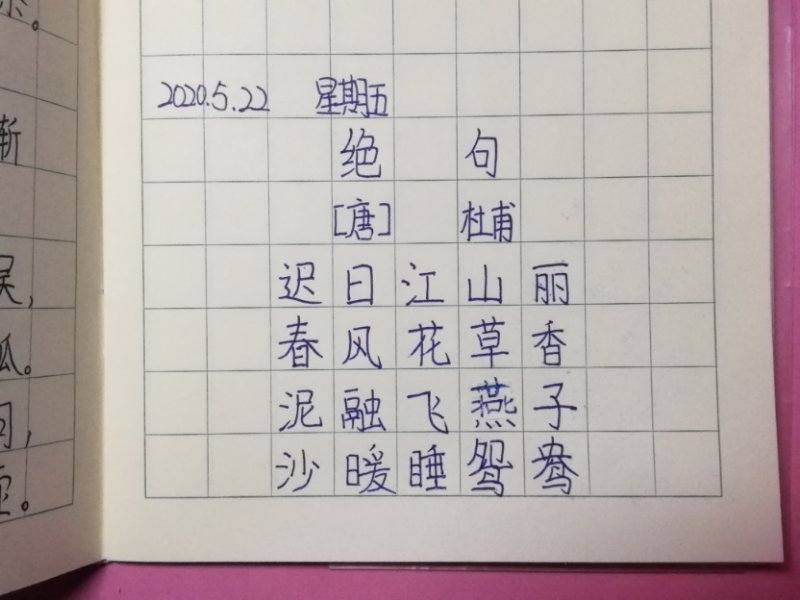 2020.5.22 星期五
绝句
[唐] 杜甫
迟日江山丽
春风花草香
泥融飞燕子
沙暖睡鸳鸯